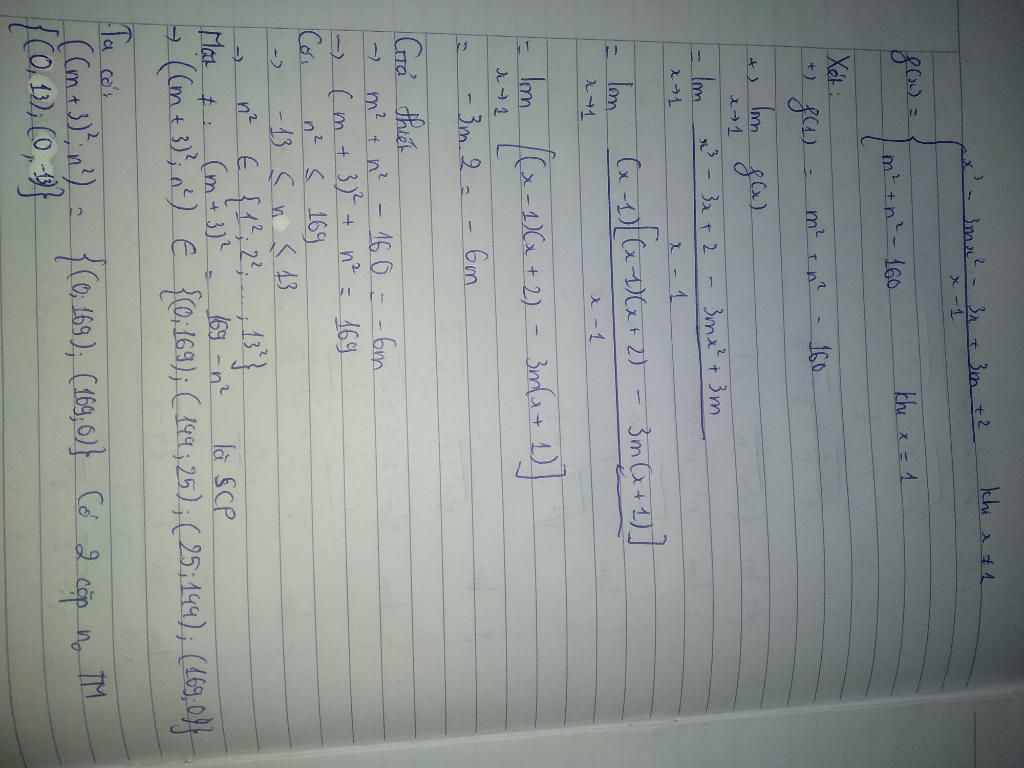 g(x) = { x³ - 3mx² - 3x + 3m + 2 / x - 1 khi x ≠ 1
m² + n² - 160 khi x = 1
Xét:
+) g(1) = m² + n² - 160
+) lim x→1 g(x)
= lim x→1 x³ - 3x + 2 - 3mx² + 3m / x - 1
= lim x→1 (x-1)[(x-1)(x+2) - 3m(x+1)] / x - 1
= lim x→1 [(x-1)(x+2) - 3m(x+1)]
= - 3m.2 = - 6m
Giả thiết
→ m² + n² - 160 = - 6m
→ (m + 3)² + n² = 169
Có: n² ≤ 169
→ -13 ≤ n ≤ 13
→ n² ∈ {1²; 2²; ...; 13²}
Mặt ≠: (m + 3)² = 169 - n² là SCP
→ ((m+3)²; n²) ∈ {(0; 169); (144; 25); (25; 144); (169; 0)}
Ta có:
((m+3)²; n²) = {(0; 169); (169; 0)} Có 2 cặp n₀ TM
{(0, 13); (0, -13)}